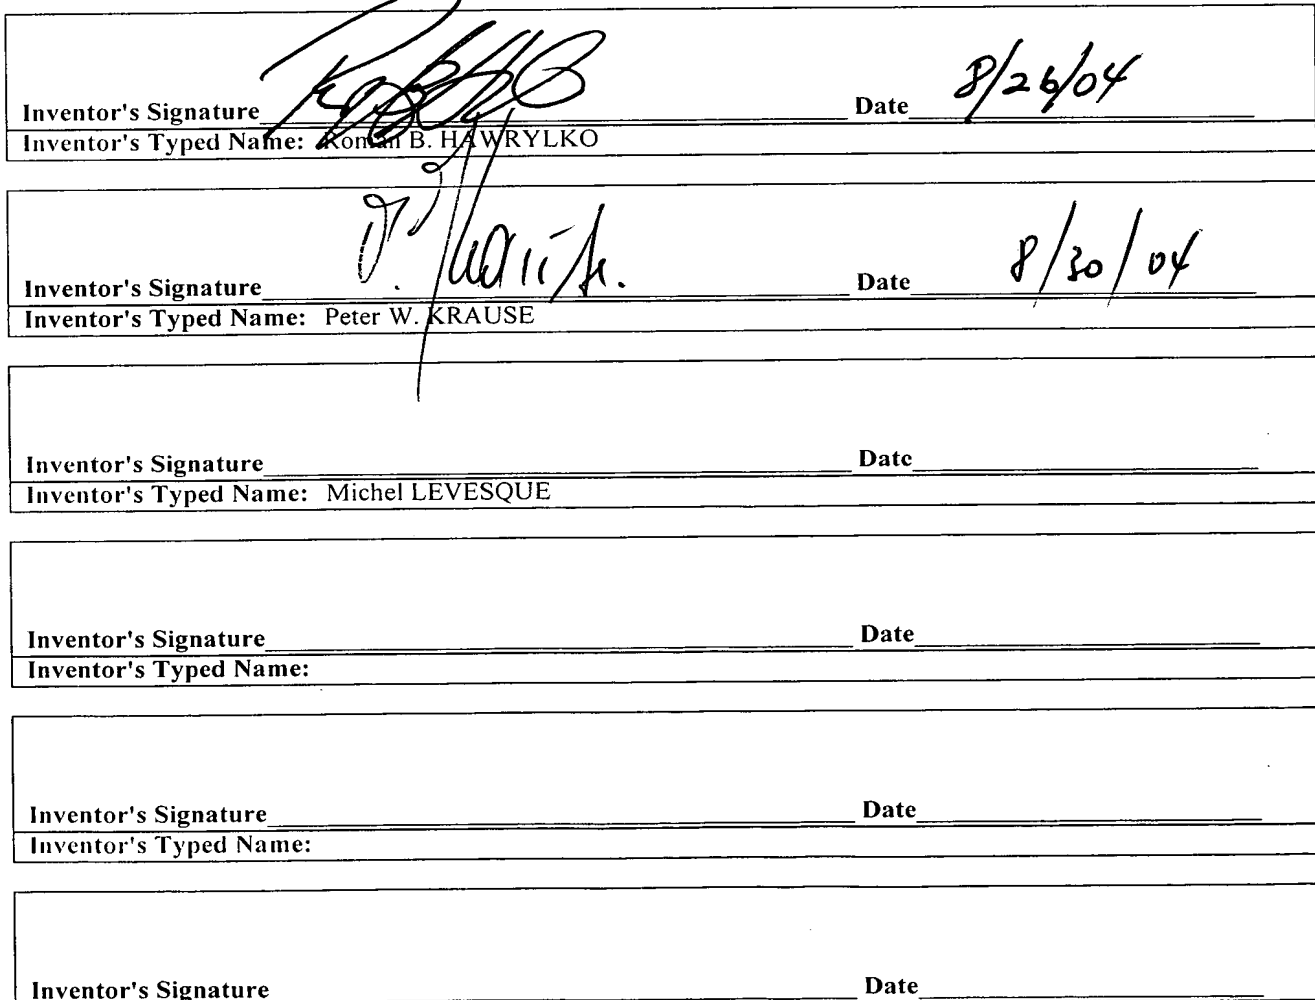 Inventor's Signature Date 8/26/04
Inventor's Typed Name: Roman B. HAWRYLKO
Inventor's Signature Date 8/30/04
Inventor's Typed Name: Peter W. KRAUSE
Inventor's Signature Date
Inventor's Typed Name: Michel LEVESQUE
Inventor's Signature Date
Inventor's Typed Name:
Inventor's Signature Date
Inventor's Typed Name:
Inventor's Signature Date